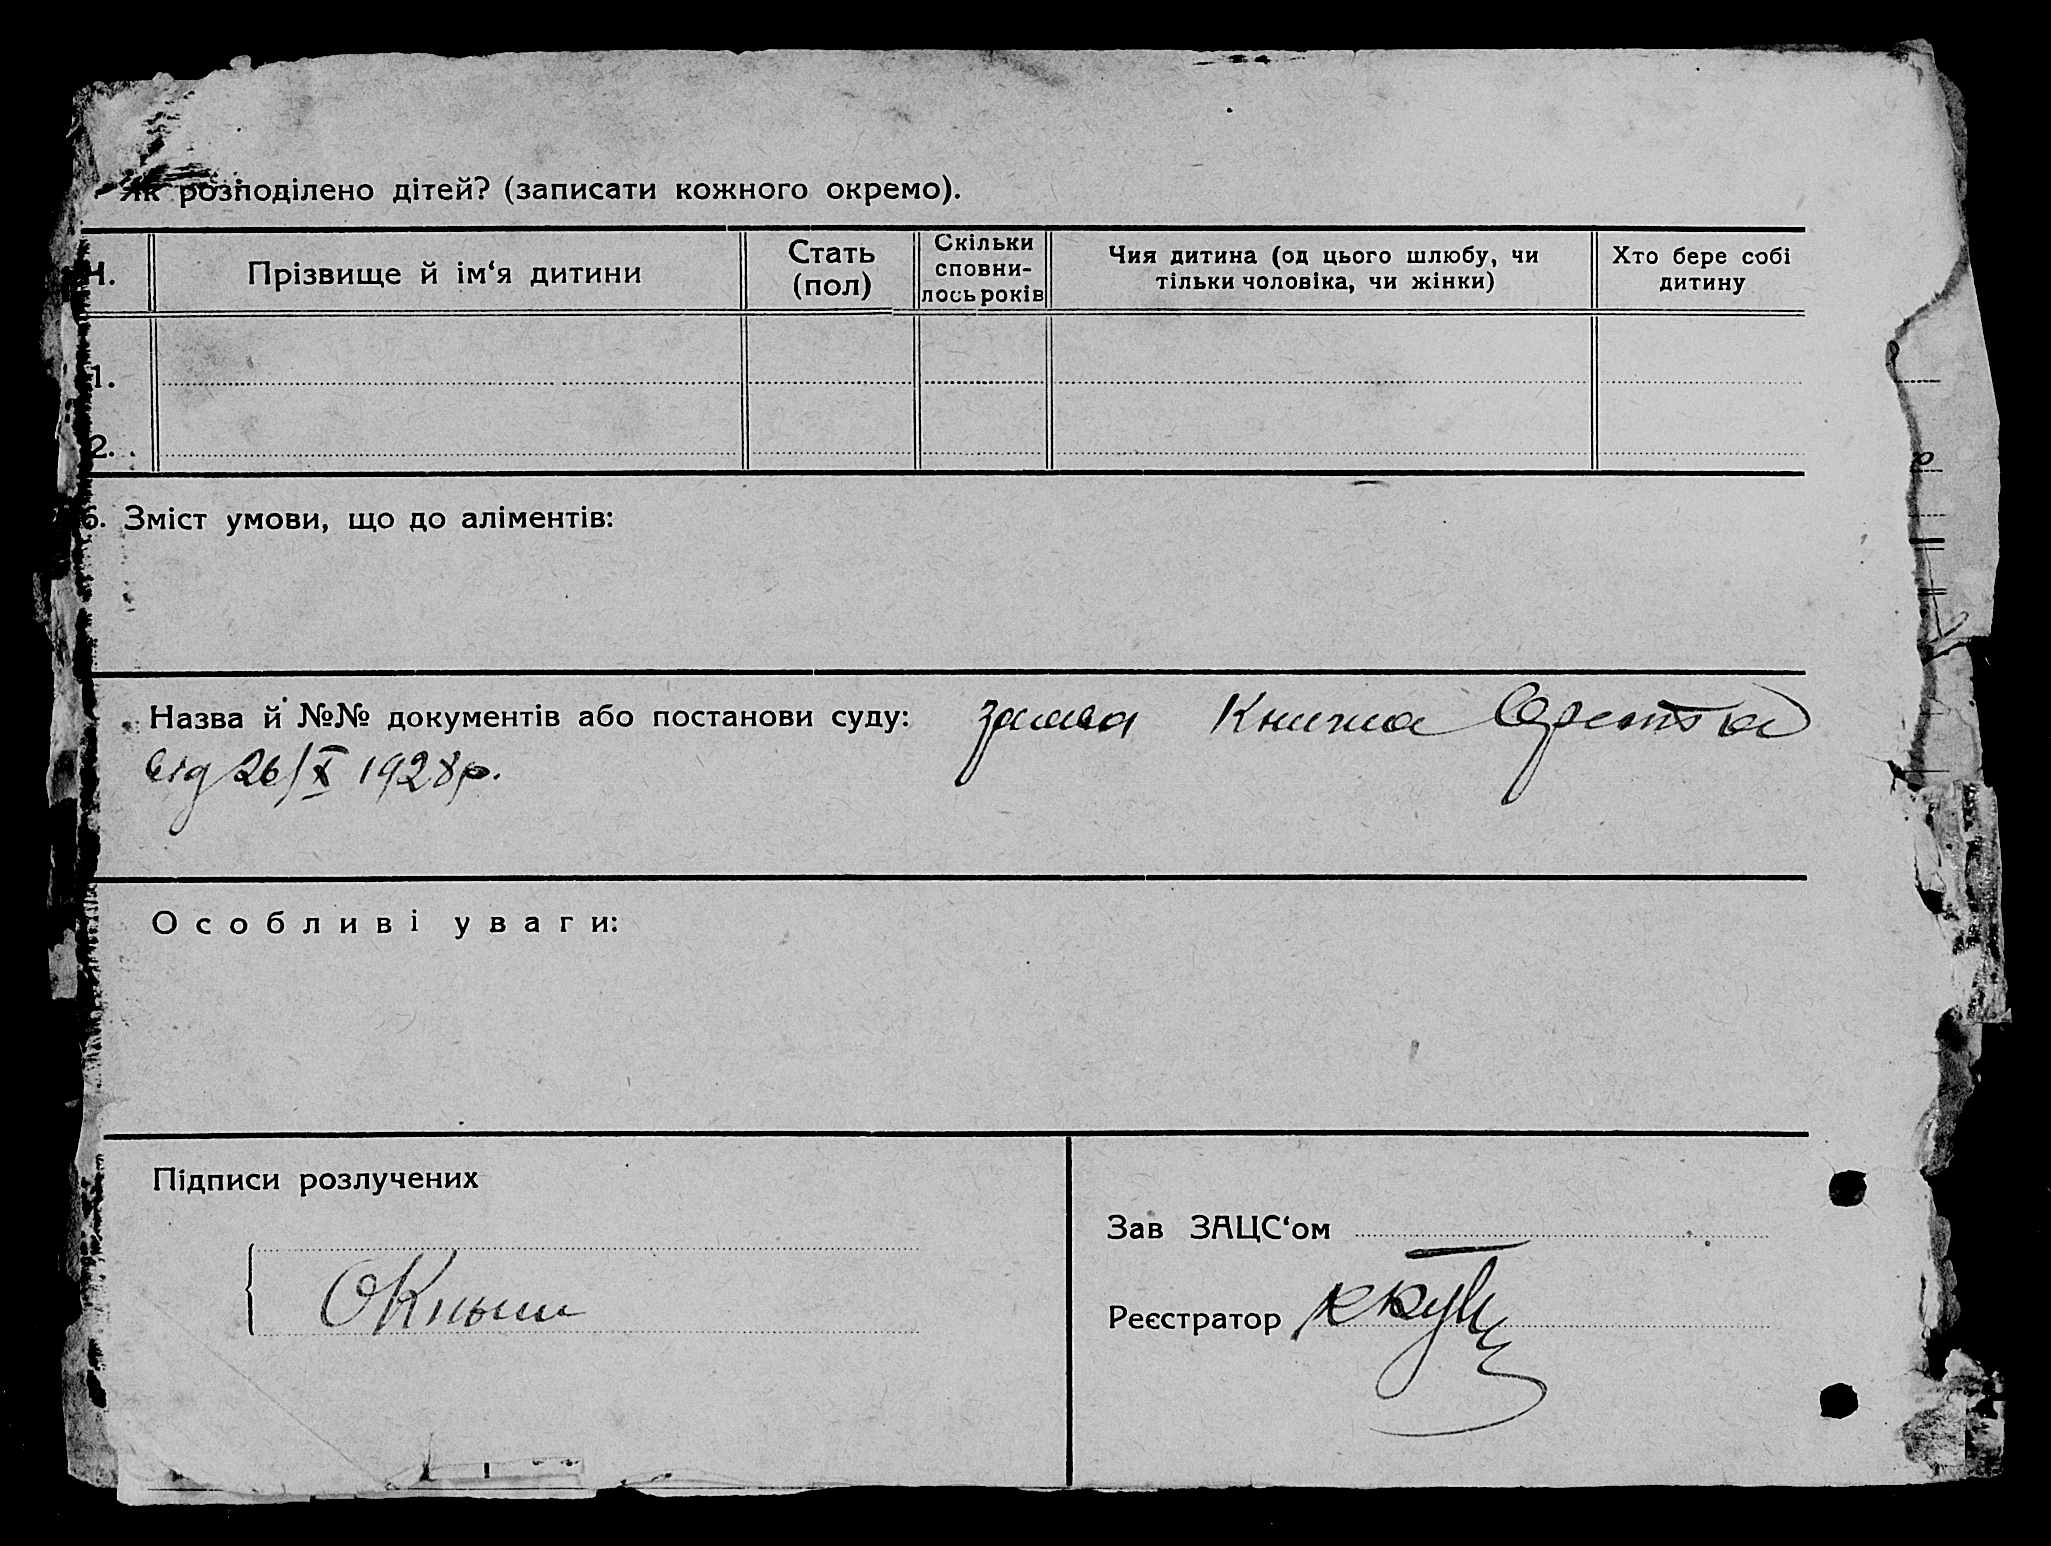 Як розподілено дітей? (записати кожного окремо).
Н. Прізвище й ім‘я дитини Стать (пол) Скільки сповни-лось років Чия дитина (од цього шлюбу, чи тільки чоловіка, чи жінки) Хто бере собі дитину
1.
2.
6. Зміст умови, що до аліментів:
Назва й №№ документів або постанови суду: Книжка
від 26/X 1928р.
Особливі уваги:
Підписи розлучених
Зав ЗАЦС‘ом
ОКныш
Реєстратор